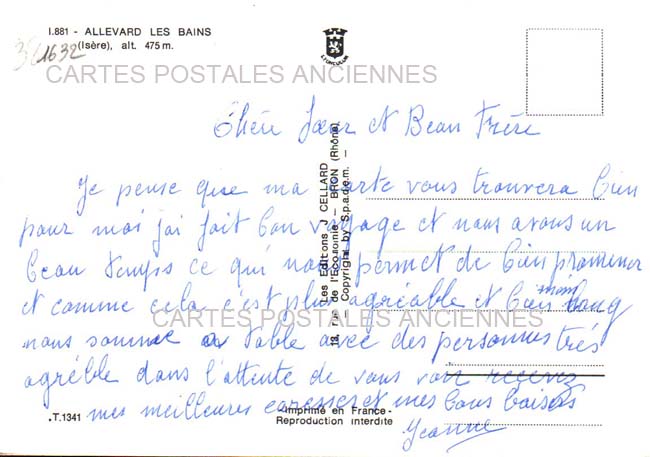 I.881 - ALLEVARD LES BAINS
(Isère), alt. 475 m.
1632
CARTES POSTALES ANCIENNES
Chère Sœur et Beau Frère
Je pense que ma carte vous trouvera bien
pour moi j'ai fait bon voyage et nous avons un
beau temps ce qui nous permet de bien promener
et comme cela c'est plus agréable et bien moins long
nous somme a table avec des personnes très
agréble dans l'attente de vous voir recevez
mes meilleures caresses et mes bons baisers
Jeanne
Les Editions J. CELLARD
18, rue de l'Economie - BRON (Rhône)
- Copyright by S.p.a.d.e.m. -
CARTES POSTALES ANCIENNES
.T.1341
Imprimé en France -
Reproduction interdite